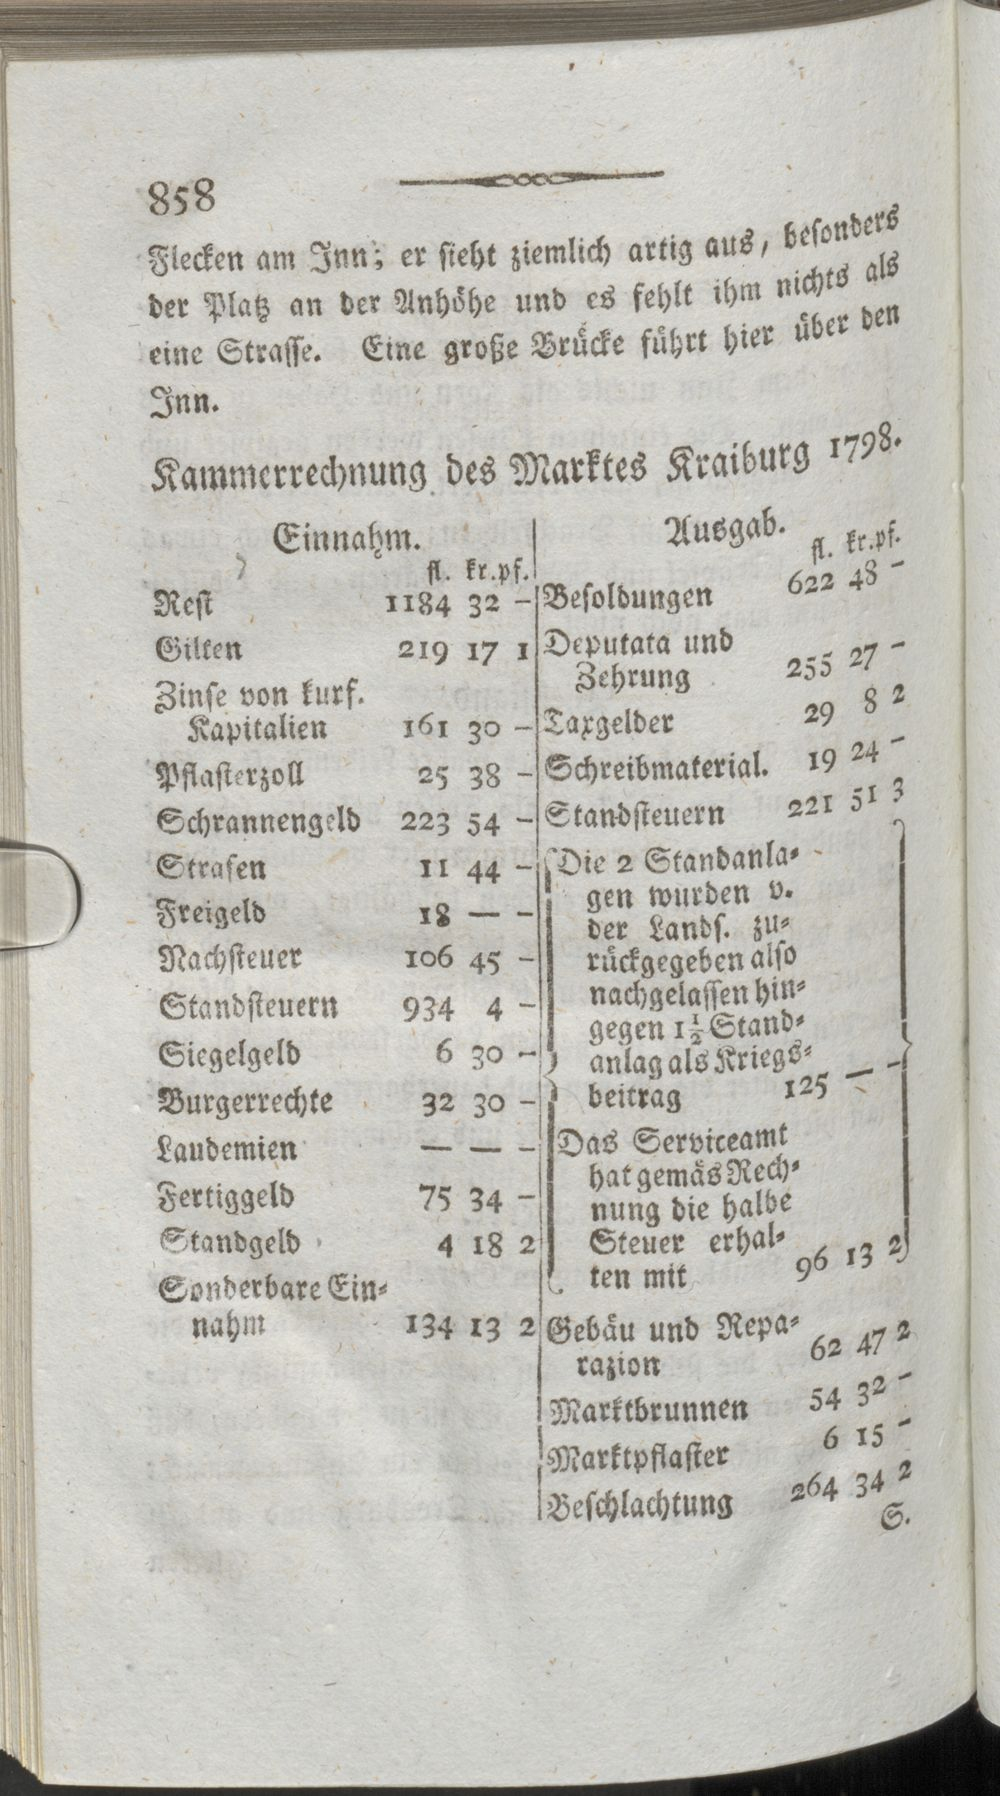 858
Flecken am Inn; er sieht ziemlich artig aus, besonders
der Platz an der Anhöhe und es fehlt ihm nichts als
eine Strasse. Eine große Brücke führt hier über den
Inn.
Kammerrechnung des Marktes Kraiburg 1798.
Einnahm.
fl. kr. pf.
Rest 1184 32 —
Gilten 219 17 1
Zinse von kurf.
Kapitalien 161 30 —
Pflasterzoll 25 38 —
Schrannengeld 223 54 —
Strafen 11 44 —
Freigeld 18 — —
Nachsteuer 106 45 —
Standsteuern 934 4 —
Siegelgeld 6 30 —
Burgerrechte 32 30 —
Laudemien — — —
Fertiggeld 75 34 —
Standgeld 4 18 2
Sonderbare Ein=
nahm 134 13 2
Ausgab.
fl. kr. pf.
Besoldungen 622 48 —
Deputata und
Zehrung 255 27 —
Taxgelder 29 8 2
Schreibmaterial. 19 24 —
Standsteuern 221 51 3
Die 2 Standanla=
gen wurden v.
der Lands. zu=
rückgegeben also
nachgelassen hin=
gegen 1½ Stand=
anlag als Kriegs=
beitrag 125 — —
Das Serviceamt
hat gemäs Rech=
nung die halbe
Steuer erhal=
ten mit 96 13 2
Gebäu und Repa=
razion 62 47 2
Marktbrunnen 54 32 —
Marktpflaster 6 15 —
Beschlachtung 264 34 2
S.